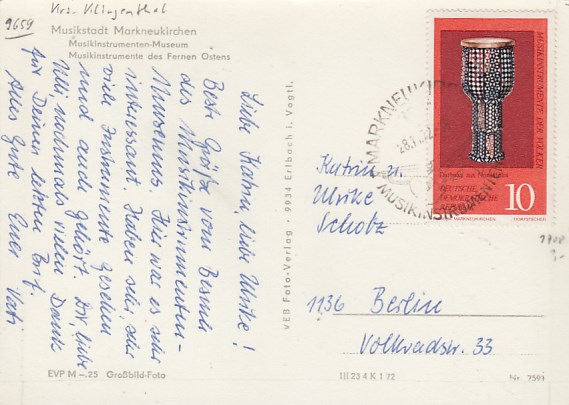 Krs. Klingenthal
9659
Musikstadt Markneukirchen
Musikinstrumenten-Museum
Musikinstrumente des Fernen Ostens
Liebe Katrin, liebe Ulrike!
Beste Grüße vom Besuch
des Musikinstrumenten-
Museums. Hier war es sehr
interessant. Haben sehr, sehr
viele Instrumente gesehen
und auch gehört. Dir, liebe
Ulli, nochmals vielen Dank
für Deinen letzten Brief.
Alles Gute Euer Vati
VEB Foto-Verlag · 9934 Erlbach i. Vogtl.
MUSIKINSTRUMENTE DER VÖLKER
DEUTSCHE
DEMOKRATISCHE
REPUBLIK
10
MARKNEUKIRCHEN
MUSIKINSTRUMENTEN
Katrin u.
Ulrike
Scholz
1136 Berlin
Volkradstr. 33
EVP M –.25 Großbild-Foto
III 23 4 K 1 72
Nr. 7591